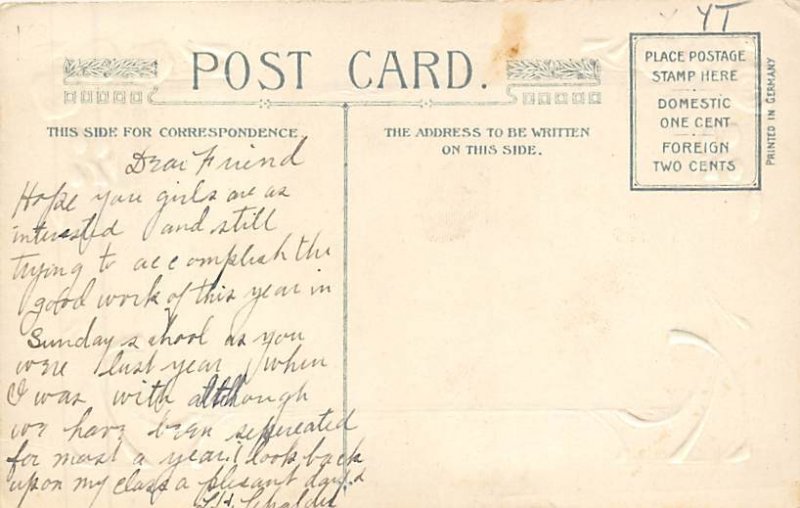 YT
POST CARD.
PLACE POSTAGE
STAMP HERE
DOMESTIC
ONE CENT
FOREIGN
TWO CENTS
PRINTED IN GERMANY
THIS SIDE FOR CORRESPONDENCE.
THE ADDRESS TO BE WRITTEN
ON THIS SIDE.
Dear Friend
Hope you girls are as
interested and still
trying to accomplish the
good work of this year in
Sunday school as you
were last year when
I was with although
we have been sepereated
for most a year I look back
upon my class a plesant days